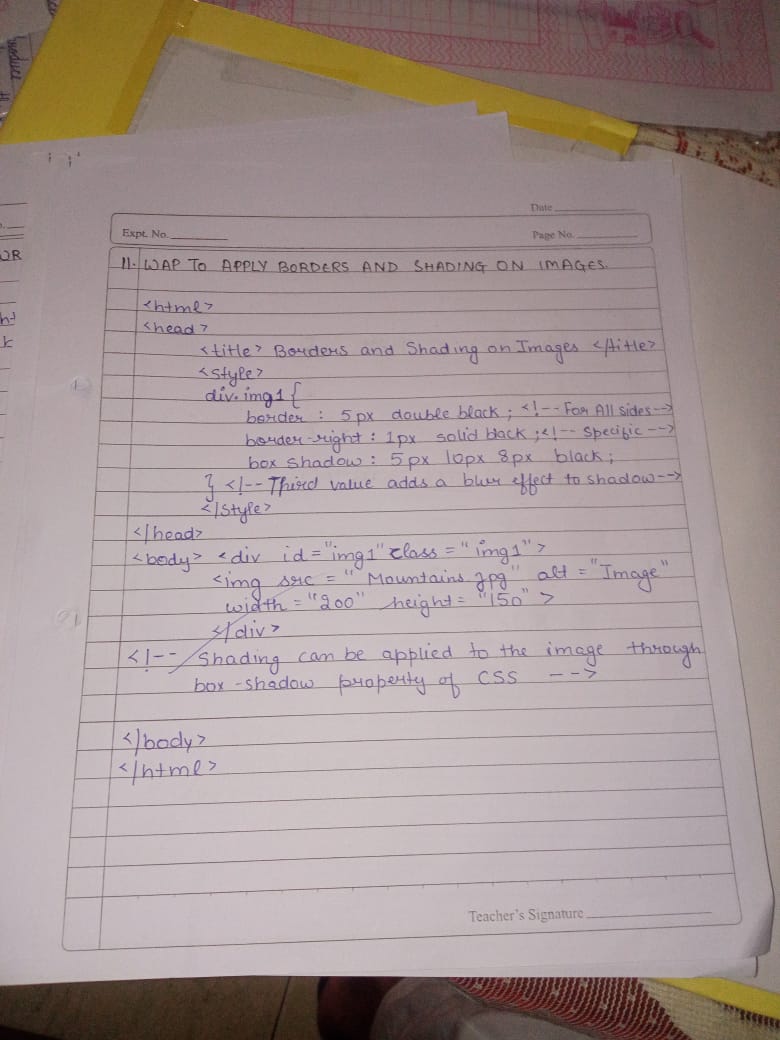 produce
OR
Date
Expt. No.
Page No.
11. WAP TO APPLY BORDERS AND SHADING ON IMAGES.
<html>
<head>
<title> Borders and Shading on Images </title>
<style>
div.img1 {
border : 5px double black ; <!-- For All sides -->
border-right : 1px solid black ; <!-- Specific -->
box shadow : 5px 10px 8px black ;
} <!-- Third value adds a blur effect to shadow -->
</style>
</head>
<body> <div id = "img1" class = "img1">
<img src = "Mountains.jpg" alt = "Image"
width = "200" height = "150" >
</div>
<!-- Shading can be applied to the image through
box-shadow property of CSS -->
</body>
</html>
Teacher's Signature